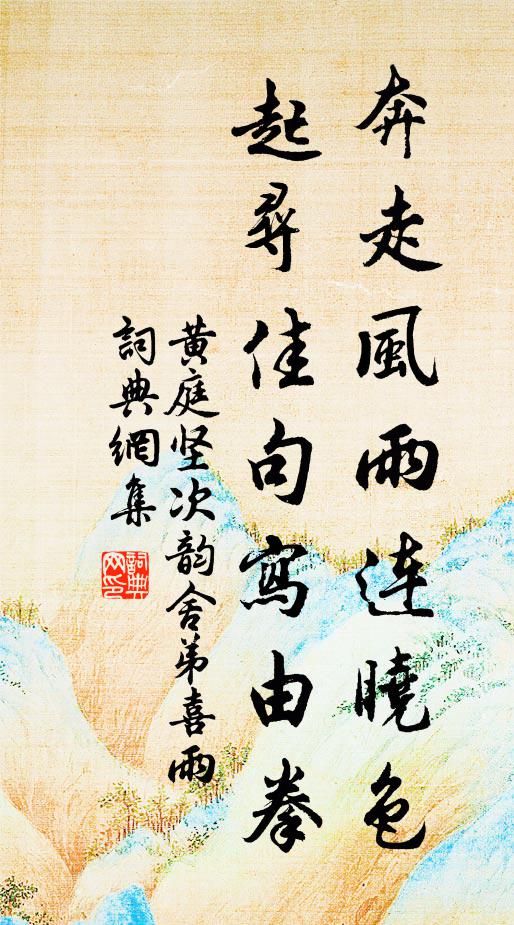 奔走風雨连曉色
起尋佳句寫由拳
黄庭坚次韵舍弟喜雨
詞典網集
詞典